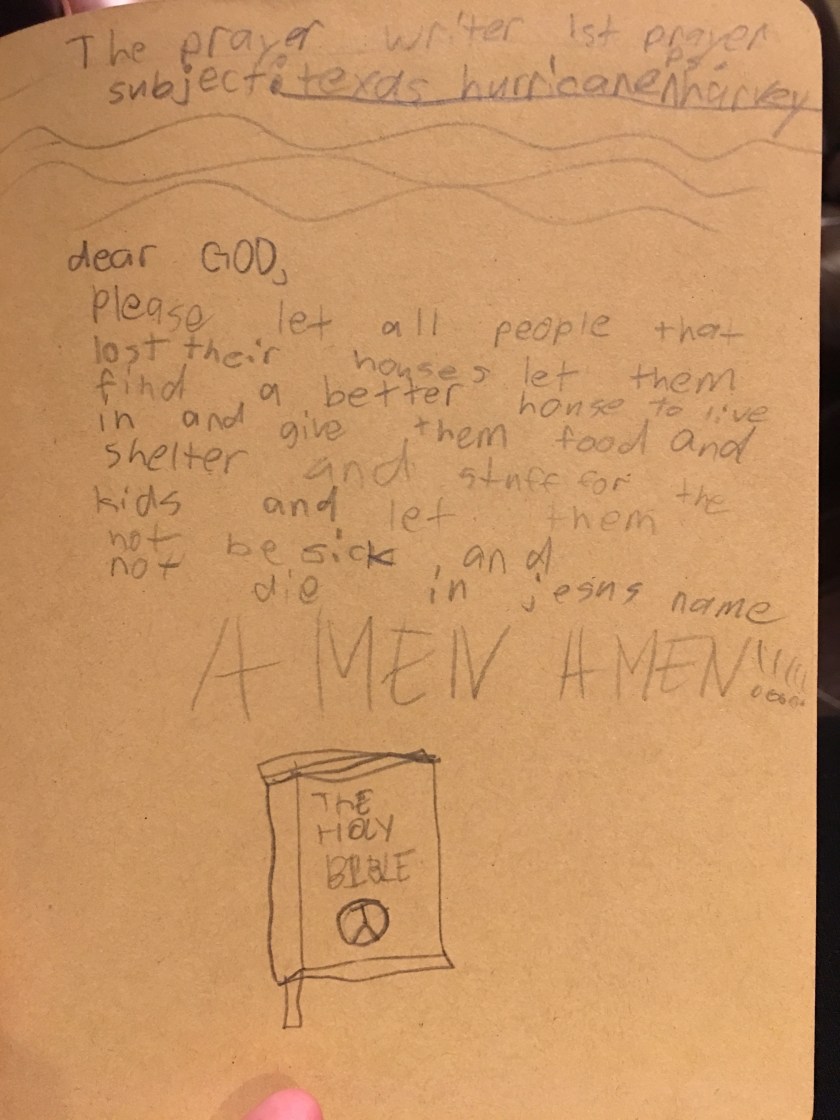 The prayer writer 1st prayer
subject: texas hurricane harvey
dear GOD,
please let all people that
lost their houses let them
find a better house to live
in and give them food and
shelter and stuff for the
kids and let them
not be sick, and
not die in jesus name
AMEN AMEN!!!!!
THE
HOLY
BIBLE